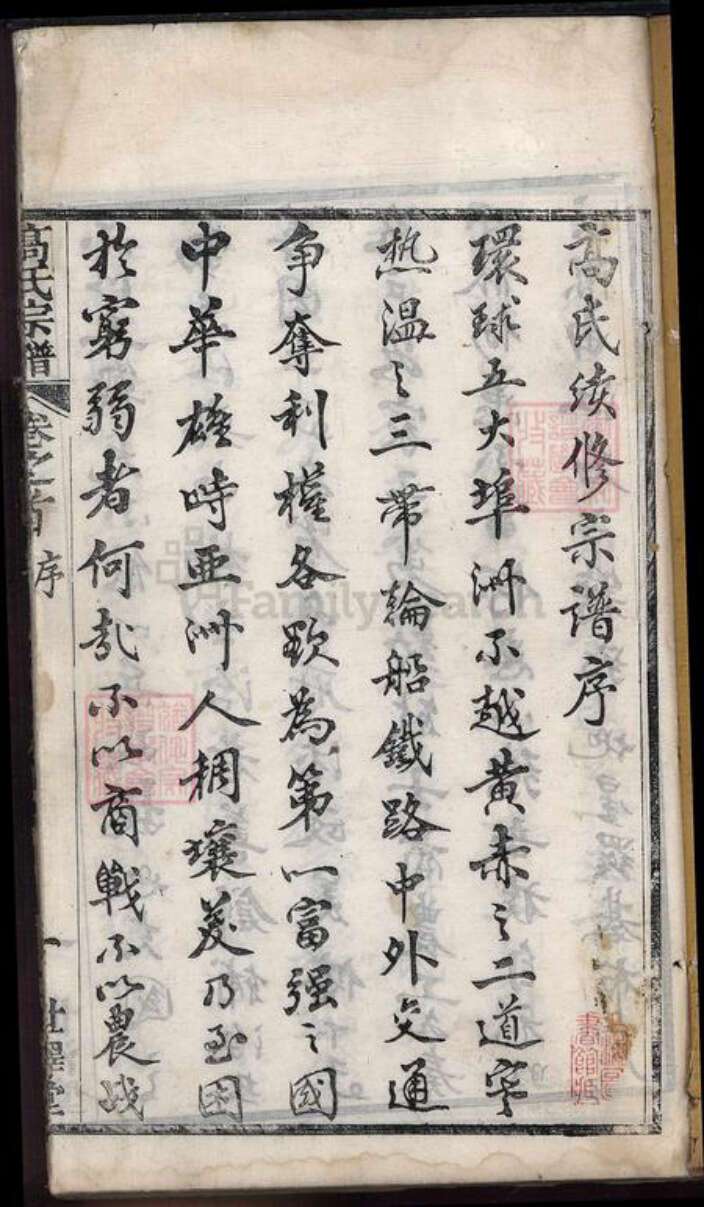 高氏续修宗譜序
環球五大埠洲不越黄赤之二道寒
热温之三带輪船鐵路中外交通
争奪利權各欲為第一富强之國
中華雄峙亞洲人稠壤美乃至困
於窮弱者何哉不以商戰不以農战
高氏宗譜
卷之首 序
一
FamilySearch